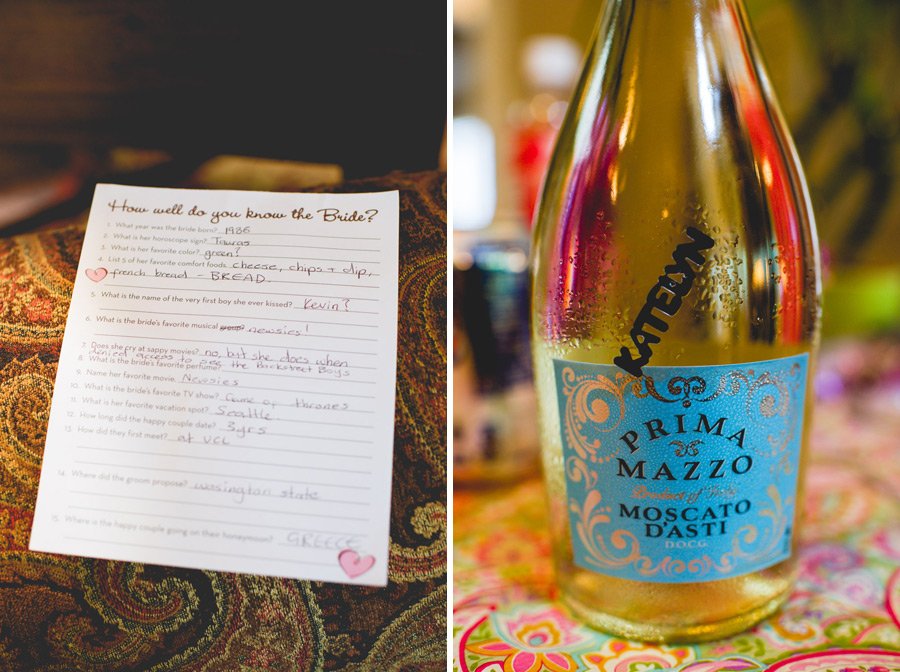 How well do you know the Bride?
1. What year was the bride born? 1986
2. What is her horoscope sign? Tauras
3. What is her favorite color? green?
4. List 5 of her favorite comfort foods. cheese, chips + dip,
french bread - BREAD.
5. What is the name of the very first boy she ever kissed? Kevin?
6. What is the bride's favorite musical group? newsies!
7. Does she cry at sappy movies? no, but she does when
denied access to see the Backstreet Boys
8. What is the bride's favorite perfume?
9. Name her favorite movie. Newsies
10. What is the bride's favorite TV show? Game of thrones
11. What is her favorite vacation spot? Seattle
12. How long did the happy couple date? 3yrs
13. How did they first meet? at VCU
14. Where did the groom propose? wasington state
15. Where is the happy couple going on their honeymoon? GREECE
KATELYN
PRIMA
MAZZO
Product of Italy
MOSCATO
D'ASTI
D.O.C.G.